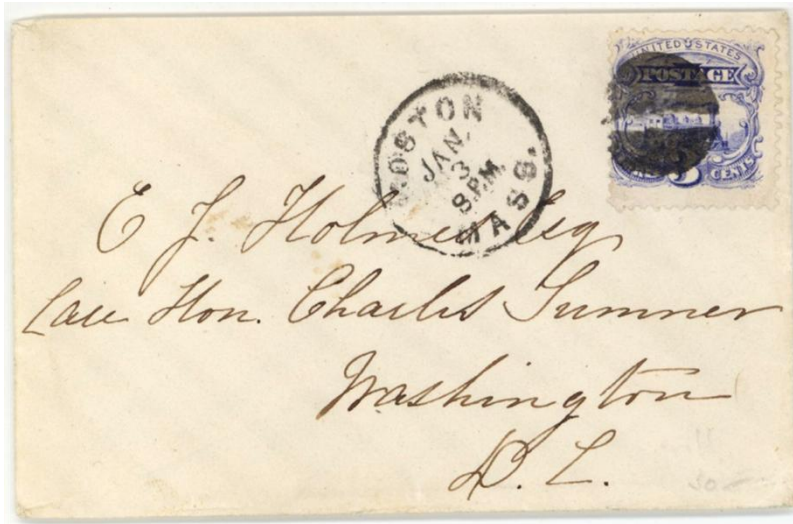 UNITED STATES
POSTAGE
CENTS
BOSTON
JAN.
3
8 P.M.
MASS.
E J. Holmes Esq
Care Hon. Charles Sumner
Washington
D. C.
30